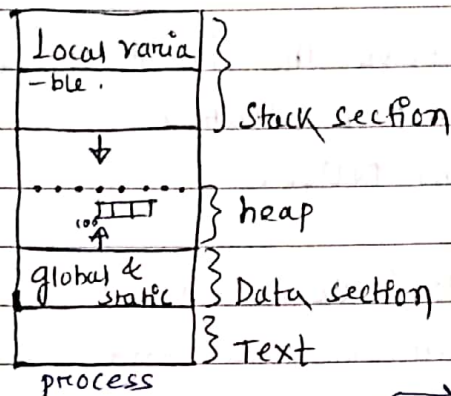 Local varia
-ble.
Stack section
heap
100
global &
static
Data section
Text
process